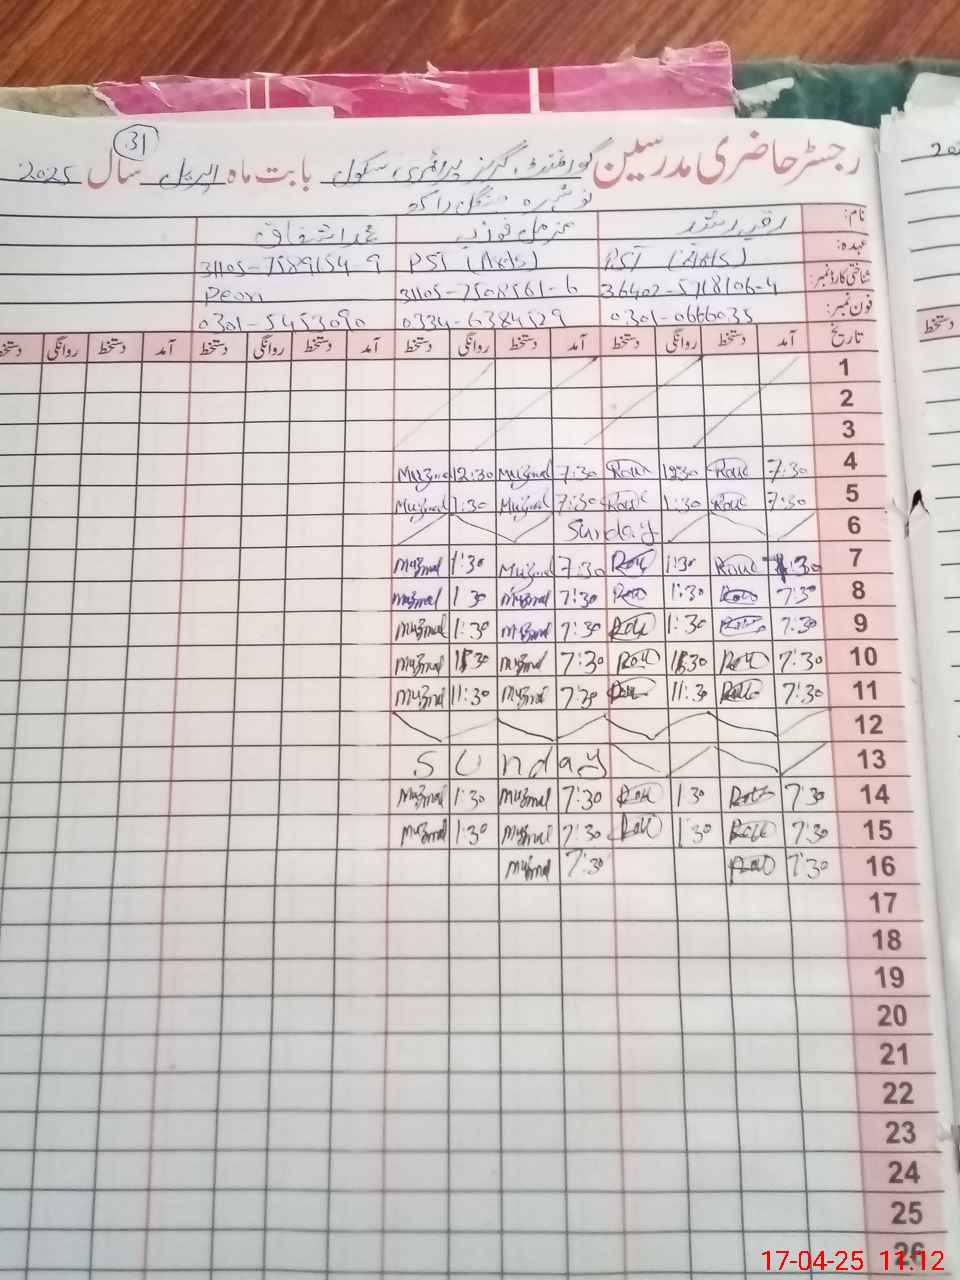 31
رجسٹر حاضری مدرسین گورنمنٹ گرلز پرائمری سکول بابت ماہ اپریل سال 2025
نوشہرہ
نام: رقیہ رشید مزمل فوزیہ محمد اشفاق
عہدہ: PST (Arts) PST (Arts) 31105-7589154-9
شناختی کارڈ نمبر: 36402-5718106-4 31105-7508561-6 Peon
فون نمبر: 0301-0666035 0334-6384529 0301-5453090
تاریخ آمد دستخط روانگی دستخط آمد دستخط روانگی دستخط آمد دستخط روانگی دستخط آمد دستخط روانگی دستخط
1
2
3
4 7:30 12:30 7:30 Muzmal 12:30 Muzmal
5 7:30 1:30 7:30 Muzmal 1:30 Muzmal
6 Sunday
7 7:30 1:30 7:30 Muzmal 1:30 Muzmal
8 7:30 1:30 7:30 Muzmal 1 30 Muzmal
9 7:30 1:30 7:30 Muzmal 1:30 Muzmal
10 7:30 1:30 7:30 Muzmal 1:30 Muzmal
11 7:30 11:30 7:30 Muzmal 11:30 Muzmal
12
13 Sunday
14 7:30 1:30 7:30 Muzmal 1:30 Muzmal
15 7:30 1:30 7:30 Muzmal 1:30 Muzmal
16 7:30 7:30 Muzmal
17
18
19
20
21
22
23
24
25
26
17-04-25 11:12
دستخط